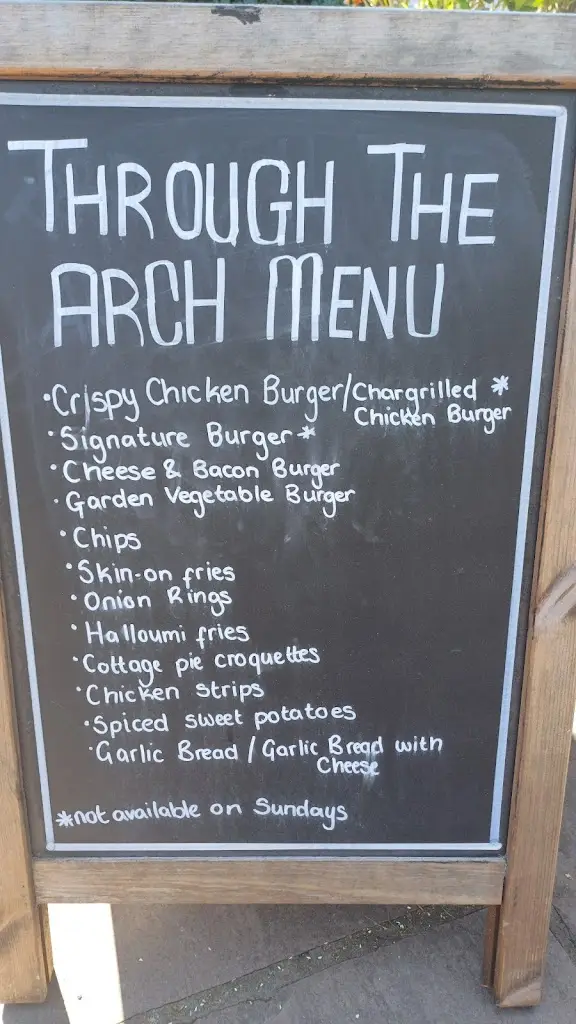 THROUGH THE
ARCH MENU
•Crispy Chicken Burger/Chargrilled *
Chicken Burger
•Signature Burger*
•Cheese & Bacon Burger
•Garden Vegetable Burger
•Chips
•Skin-on fries
•Onion Rings
•Halloumi fries
•Cottage pie croquettes
•Chicken strips
•Spiced sweet potatoes
•Garlic Bread / Garlic Bread with
Cheese
*not available on Sundays